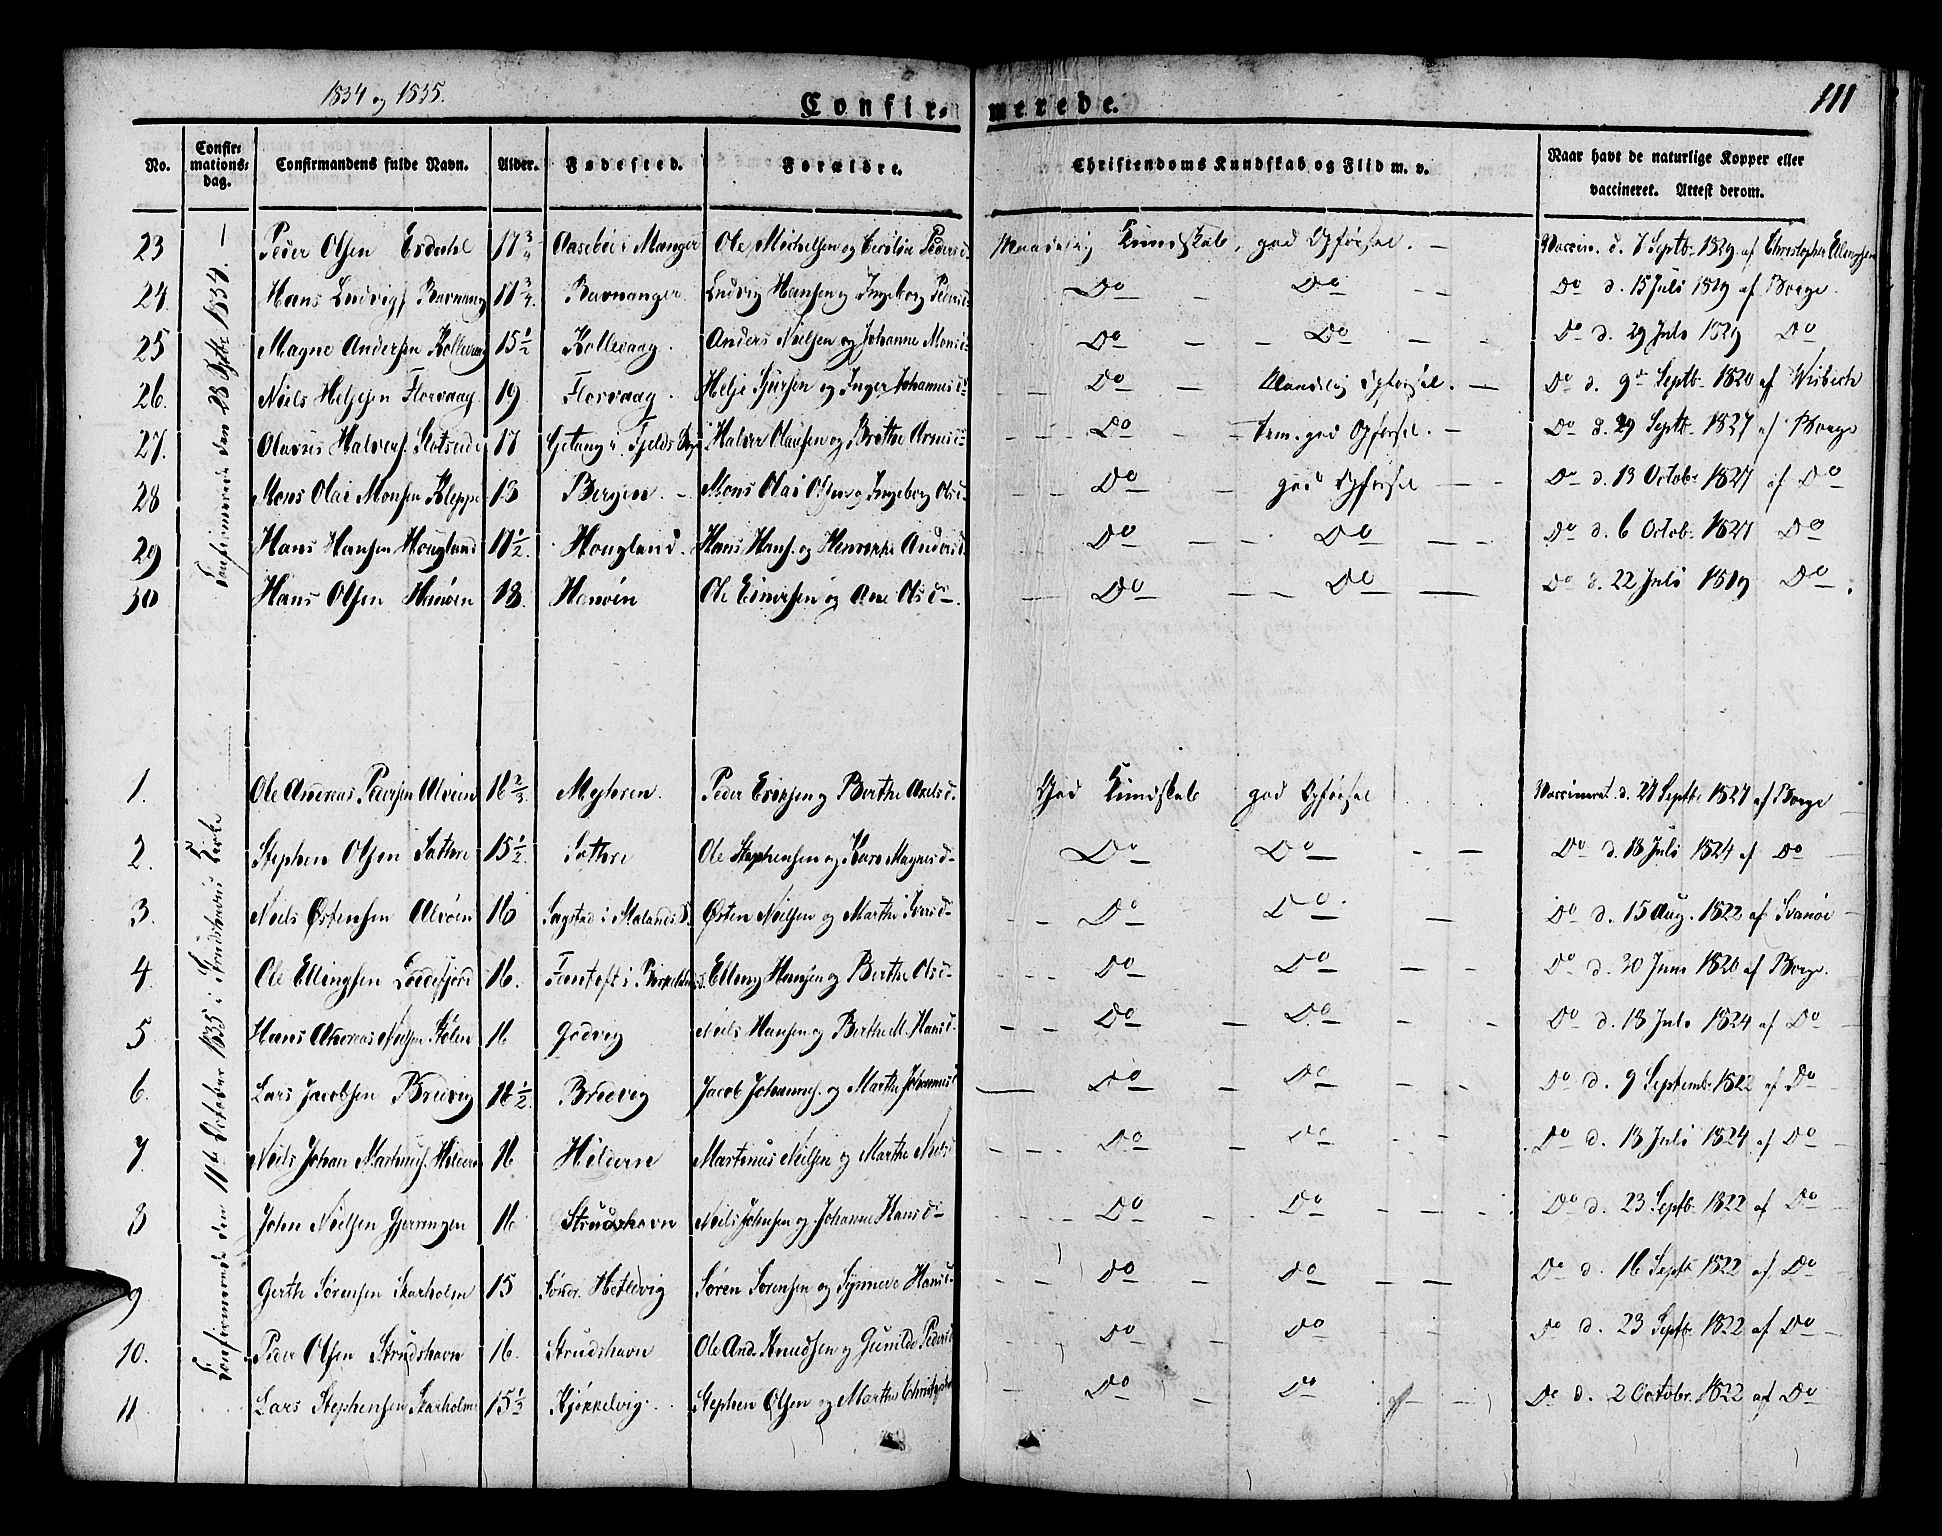 1834 og 1835.
Confirmerede.
111
No. Confirmationsdag. Confirmandens fulde Navn. Alder. Fødested. Forældre. Christendoms Kundskab og Flid m. v. Naar havt de naturlige Kopper eller vaccineret. Attest derom.
Confirmerede den 28 Septbr 1834.
23 Peder Olsen 17 3/4 i Manger Ole Michelsen og Cecilia Pedersd. Kundskab, god Opførsel. Vaccin. d. 7 Septb. 1829 af Christopher
24 Hans Ludvigs Ravnang 3/4 Ravnanger. Ludvig Hansen og Ingeborg Pedersd. Do Do Do d. 15 Juli 1829 af Borge.
25 Magne Andersen Kollevaag 15 1/2 Kollevaag. Anders Nielsen og Johanne Monsd. Do Do Do d. 29 Juli 1829 Do
26. Niels Helgesen Florvaag. 19 Florvaag. Helje Sjursen og Inger Johannesd. Do Opførsel. Do d. 9de Septb. 1820 af Wisbech
27. Olavus Halvors. 17 i Fjelds Halvor Olausen og Brithe Arnesd. Do god Opførsel. Do d. 29 Septb. 1827 af Borge
28 Mons Olai Monsen Kleppe 18 Bergen. Mons Olai Olsen og Ingeborg Olsd. Do god Opførsel Do d. 13 Octobr 1827 af Do
29 Hans Hansen Hougland 17 1/2. Hougland. Hans Hans. og Andersd. Do Do Do d. 6 Octob. 1827 Do
30 Hans Olsen Hanøen 18. Hanøen Ole og Ane Olsd. Do Do Do d. 22 Juli 1819 Do
Confirmerede den 11te October 1835 i Strudshavns Kirke
1. Ole Andreas Pedersen Alvøen 16 2/3 Peder Ericksen og Berthe Axelsd. God Kundskab god Opførsel Vaccineret d. Septbr 1827 af Borge
2. Stephen Olsen Sothre 15 1/2. Sothre Ole Stephensen og Kari Magnesd. Do Do Do d. 13 Juli 1824 af Do
3. Niels Østensen Alvøen 16 i Østen Nielsen og Marthe Iversd. Do Do Do d. 15 Aug. 1822 af Svanøe
4. Ole Ellingsen 16. i Elling Hansen og Berthe Olsd. Do Do Do d. 30 Juni 1820 af Borge.
5 Hans Andreas Nielsen 16 Godvig Niels Hansen og Berthe M. Hansd. Do Do Do d. 13 Juli 1824 af Do
6. Lars Jacobsen Bredvig 16 1/2. Bredvig Jacob Johannes. og Marthe Johannesd. Do Do Do d. 9 Septembr 1822 af Do
7. Niels Johan Martinus. Hilderen 16 Hilderen Martinus Nielsen og Marthe Nielsd. Do Do Do d. 13 Juli 1824 af Do
8 John Nielsen Gjerringen 16 Strudshavn Niels Johnsen og Johanne Hansd. Do Do Do d. 23 Septb. 1822 af Do
9 Gerth Sørensen Skarholm 15 Sønd. Hetlevig Søren Sørensen og Synneve Hansd. Do Do Do d. 16 Septb. 1822 af Do
10. Peder Olsen Strudshavn 16. Strudshavn Ole And. Knudsen og Gunilde Pedersd. Do Do Do d. 23 Septb. 1822 af Do
11 Lars Stephensen Skarholm 15 1/2 Kjøkkelvig Stephen Olsen og Marthe Do Do Do d. 2 Octobr. 1822 af Do